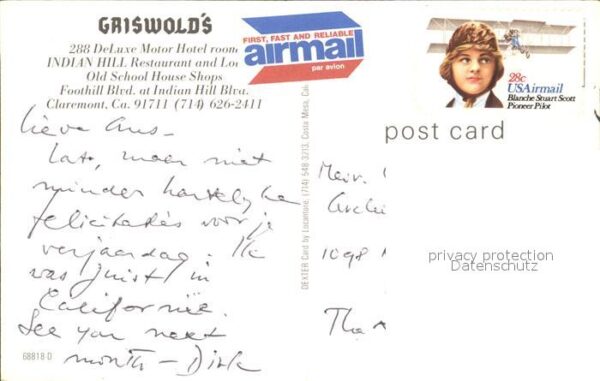 GRISWOLD'S
288 DeLuxe Motor Hotel room
INDIAN HILL Restaurant and Lo
Old School House Shops
Foothill Blvd. at Indian Hill Blvd.
Claremont, Ca. 91711 (714) 626-2411
FIRST, FAST AND RELIABLE
airmail
par avion
28c
USAirmail
Blanche Stuart Scott
Pioneer Pilot
post card
Lieve Ans -
Laat, maar niet
minder hartelijke
felicitaties voor je
verjaardag. Ik
was juist in
Californië.
See you next
month - Dirk
68818 D
DEXTER Card by Locamore, (714) 548-3213, Costa Mesa, Cal
Mevr.
1098
The
privacy protection
Datenschutz